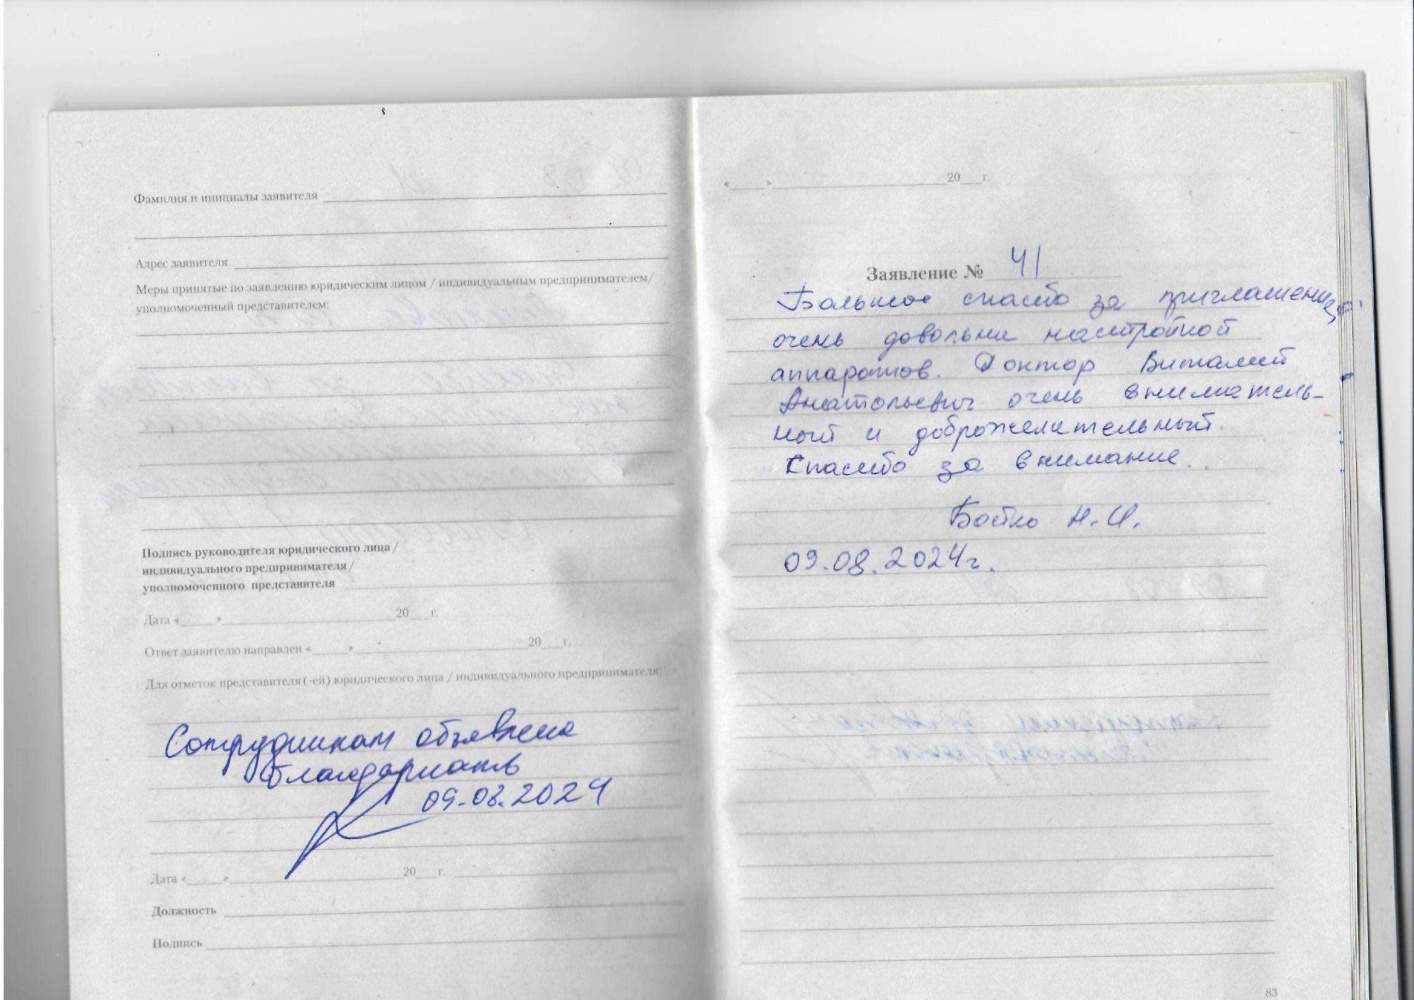 Фамилия и инициалы заявителя
Адрес заявителя
Меры принятые по заявлению юридическим лицом / индивидуальным предпринимателем/
уполномоченный представителем:
Подпись руководителя юридического лица /
индивидуального предпринимателя/
уполномоченного представителя
Дата «____» ____ 20__г.
Ответ заявителю направлен «____» ____ 20__г.
Для отметок представителя (-ей) юридического лица / индивидуального предпринимателя
Сотрудникам объявлена
благодарность
09.08.2024
Дата «____» ____ 20__г.
Должность
Подпись
«____» ____ 20__г.
Заявление № 41
Большое спасибо за приглашение,
очень довольны настройкой
аппаратов. Доктор Виталий
Анатольевич очень вниматель-
ный и доброжелательный.
Спасибо за внимание.
Бойко Н.И.
09.08.2024г.
83